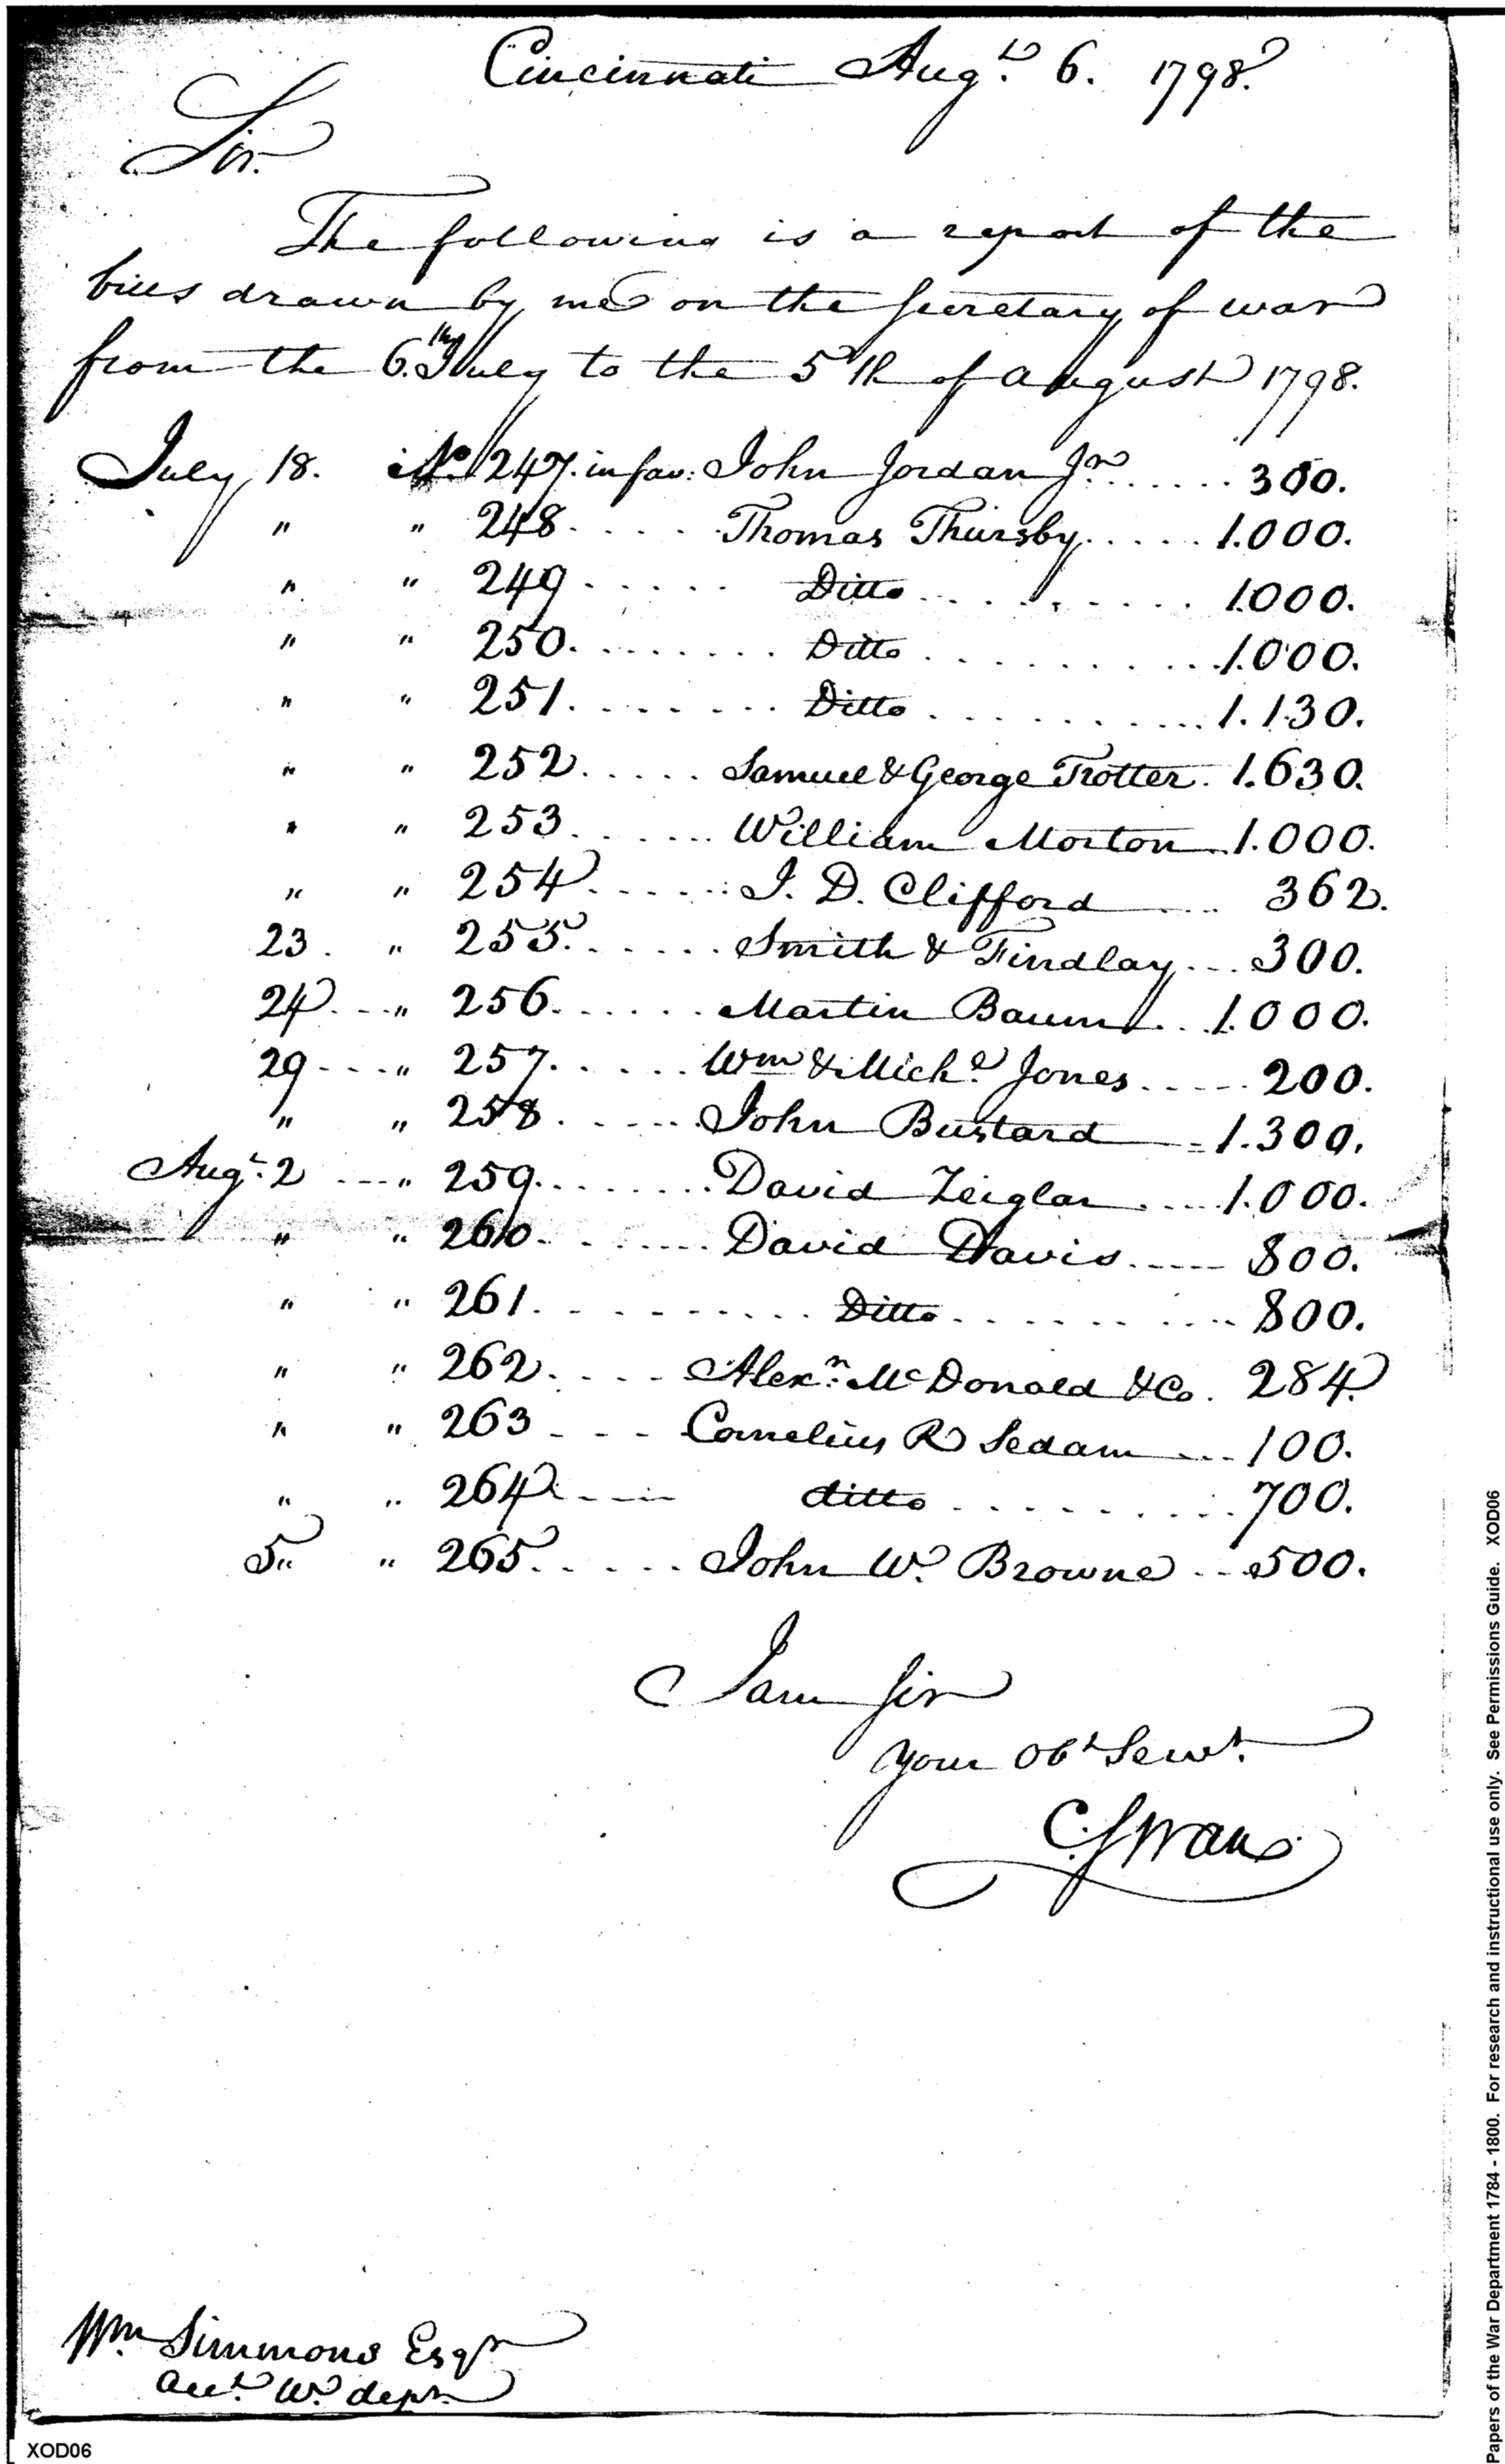 Cincinnati Augt. 6. 1798.
Sir.
The following is a report of the
bills drawn by me on the Secretary of war
from the 6.th July to the 5th of august 1798.
July 18. No. 247. in fav: John Jordan Jr. ...... 300.
" " 248. .... Thomas Thursby. .... 1.000.
" " 249 ..... Ditto .......... 1000.
" " 250. ....... Ditto .......... 1.000.
" " 251. ....... Ditto .......... 1.130.
" " 252. .... Samuel & George Trotter. 1.630.
" " 253. ..... William Morton . 1.000.
" " 254. ..... J. D. Clifford .... 362.
23. " 255. ..... Smith & Findlay ... 300.
24. .. " 256. ..... Martin Baum ... 1.000.
29 ... " 257. .... Wm & Michl. Jones .... 200.
" " 258. .... John Bustard = 1.300.
Augt. 2 ... " 259. ...... David Zeiglar .... 1.000.
" " 260. ...... David Davis ..... 800.
" " 261. ......... Ditto .......... 800.
" " 262. .... Alexr. McDonald & Co. 284.
" " 263 ... Cornelius R Sedam ... 100.
" " 264. .... ditto ........ 700.
5 " " 265. .... John W. Browne .. 500.
I am Sir
your Obt Servt.
C. Swan
Wm. Simmons Esqr
Acct. W. dept.
XOD06
Papers of the War Department 1784 - 1800. For research and instructional use only. See Permissions Guide. XOD06